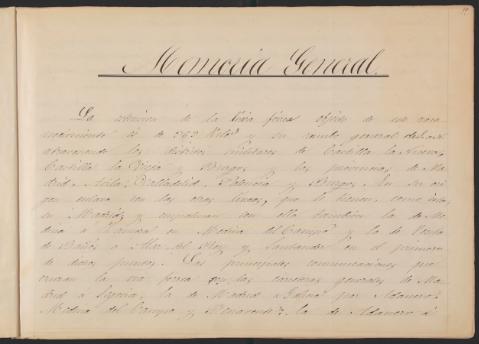 Memoria General.
La estension de la linea férrea objeto de un reco
nocimiento es de 363 Kilos y su rumbo general
atravesando los distritos militares de Castilla la Nueva,
Castilla la Vieja y Burgos, y las provincias de Ma
drid, Avila, Valladolid, Palencia y Burgos. En su ori
gen enlaza con las otras lineas, que le tienen, como esta,
en Madrid y empalman con ella tambien la de Me
dina á Zamora en Medina del Campo y la de Venta
de Baños á Alar del Rey y Santander en el primero
de dichos puntos. Las principales comunicaciones que
cruzan la via férrea son las carreteras generales de Ma
drid á Segovia, la de Madrid por Adanero
Medina del Campo y Benavente, la de Adanero á